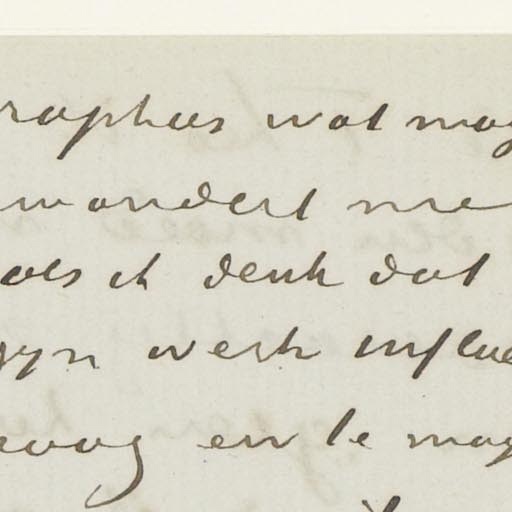 raphus wat mag
wondert me
als ik denk dat
zyn werk influe
hoog en te mag